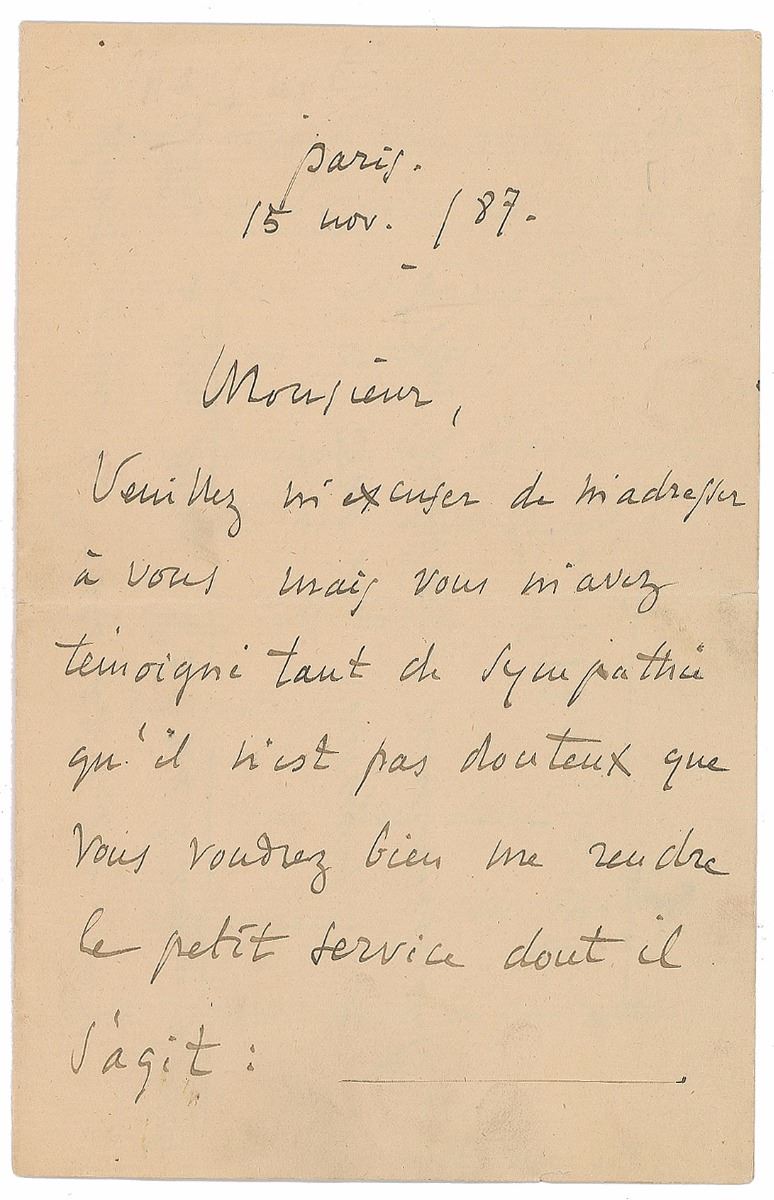 Paris.
15 nov. /87.
Monsieur,
Veuillez m'excuser de m'adresser
à vous mais vous m'avez
témoigné tant de sympathie
qu'il n'est pas douteux que
vous voudrez bien me rendre
le petit service dont il
s'agit :